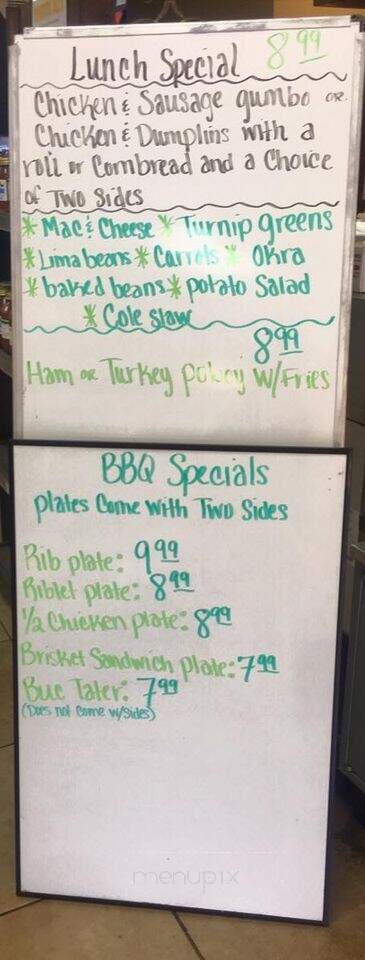 Lunch Special 8.99
Chicken & Sausage gumbo or
Chicken & Dumplins with a
roll or Cornbread and a Choice
of Two Sides
* Mac & Cheese * Turnip greens
* Lima beans * Carrots * Okra
* baked beans * potato Salad
* Cole slaw
8.99
Ham or Turkey poboy w/Fries
BBQ Specials
plates Come With Two Sides
Rib plate: 9.99
Riblet plate: 8.99
1/2 Chicken plate: 8.99
Brisket Sandwich plate: 7.99
Bue Tater: 7.99
(Does not Come w/Sides)
menupix